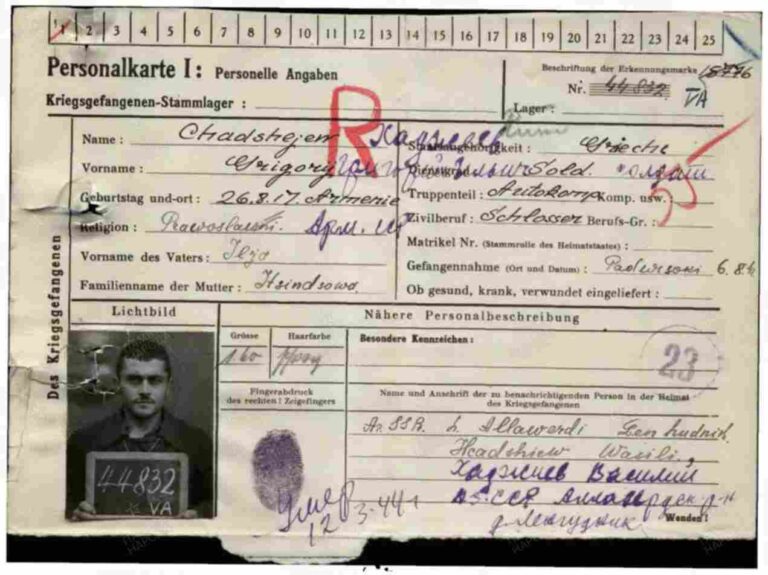 1 2 3 4 5 6 7 8 9 10 11 12 13 14 15 16 17 18 19 20 21 22 23 24 25
Personalkarte I: Personelle Angaben
Beschriftung der Erkennungsmarke
Nr. 44832 VA
Kriegsgefangenen-Stammlager :
Lager :
R
Des Kriegsgefangenen
Name : Chadshejew Хаджиев
Staatsangehörigkeit : Grieche
Vorname : Grigory Григорий Ильич
Dienstgrad : Sold. солдат
Geburtstag und-ort : 26.8.17. Armenie
Truppenteil : Autokomp Komp. usw. :
Religion : Prawoslawni. Арм. ССР
Zivilberuf : Schlosser Berufs-Gr. :
Matrikel Nr. (Stammrolle des Heimatstaates) :
Vorname des Vaters : Iljo
Gefangennahme (Ort und Datum) :
Familienname der Mutter :
Ob gesund, krank, verwundet eingeliefert :
Lichtbild
Nähere Personalbeschreibung
Grösse
Haarfarbe
Besondere Kennzeichen :
1.60
23
Fingerabdruck
des rechten! Zeigefingers
Name und Anschrift der zu benachrichtigenden Person in der Heimat
des Kriegsgefangenen
Ar. SSR. Allawerdi
Wasili,
Хаджиев Василий
44832
VA
умер
12.3.44
Wenden!